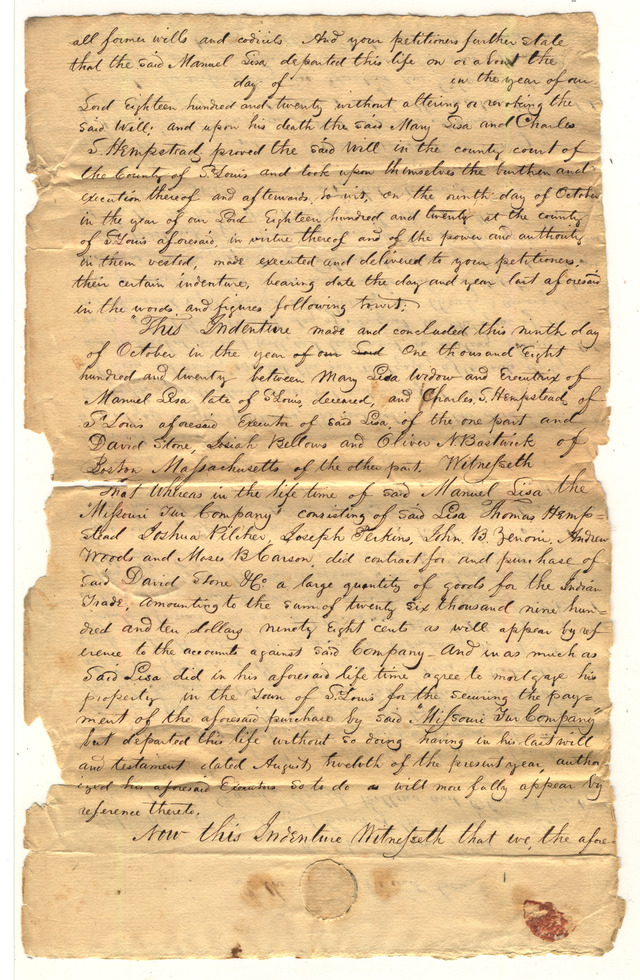 all former wills and codicils. And your petitioners further state
that the said Manuel Lisa departed this life on or about the
day of in the year of our
Lord Eighteen hundred and twenty without altering or revoking the
said Will; and upon his death the said Mary Lisa and Charles
S. Hempstead, proved the said Will in the county court of
the County of St Louis and took upon themselves the burthen and
execution thereof and afterwards, to wit, on the ninth day of October
in the year of our Lord Eighteen hundred and twenty at the county
of St Louis aforesaid, in virtue thereof and of the power and authority
in them vested, made executed and delivered to your petitioners
their certain indenture, bearing date the day and year last aforesaid
in the words and figures following towit;
"This Indenture made and concluded this ninth day
of October in the year of our Lord One thousand Eight
hundred and twenty between Mary Lisa Widow and Executrix of
Manuel Lisa late of St Louis, deceased, and Charles S. Hempstead, of
St Louis aforesaid Executor of said Lisa, of the one part and
David Stone, Josiah Bellows and Oliver N Bostwick of
Boston Massachusetts of the other part. Witnesseth
That whereas in the life time of said Manuel Lisa the
"Missouri Fur Company" consisting of said Lisa Thomas Hemp=
stead Joshua Pilcher, Joseph Perkins, John B. Zenoni, Andrew
Woods and Moses B Carson, did contract for and purchase of
said David Stone &Co a large quantity of goods for the Indian
Trade, amounting to the sum of twenty six thousand nine hun=
dred and ten dollars ninety Eight cents as will appear by ref
erence to the accounts against said Company - And in as much as
said Lisa did in his aforesaid life time agree to mortgage his
property in the Town of St Louis for the securing the pay=
ment of the aforesaid purchase by said "Missouri Fur Company"
but departed this life without so doing having in his last will
and testament dated August twelvth of the present year, author
ized his aforesaid Executors so to do as will more fully appear by
reference thereto.
Now this Indenture Witnesseth that we, the afore-